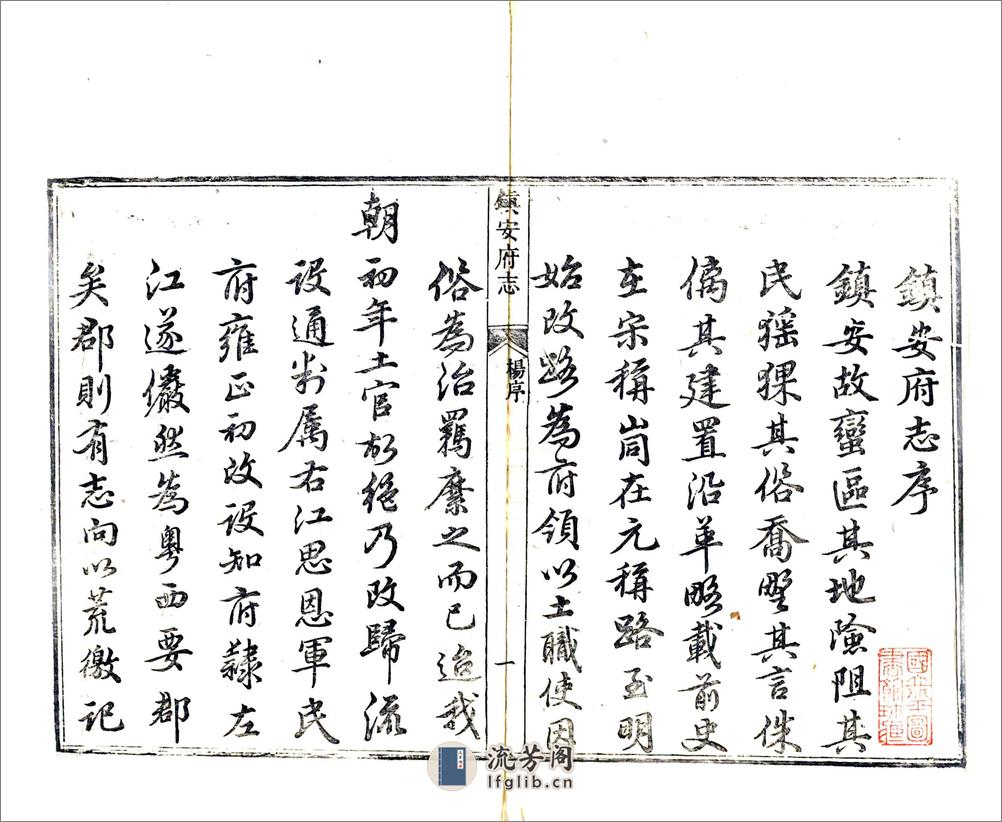 鎮安府志序
鎮安故蠻區其地險阻其
民猺猓其俗喬野其言侏
僪其建置沿革略載前史
在宋稱峝在元稱路至明
始改路為府領以土職使因
鎮安府志
楊序
一
俗為治羈縻之而已迨我
朝初年土官故絕乃改歸流
設通判属右江思恩軍民
府雍正初改設知府隸左
江遂儼然為粵西要郡
矣郡則有志向以荒徼記
流芳阁
lfglib.cn